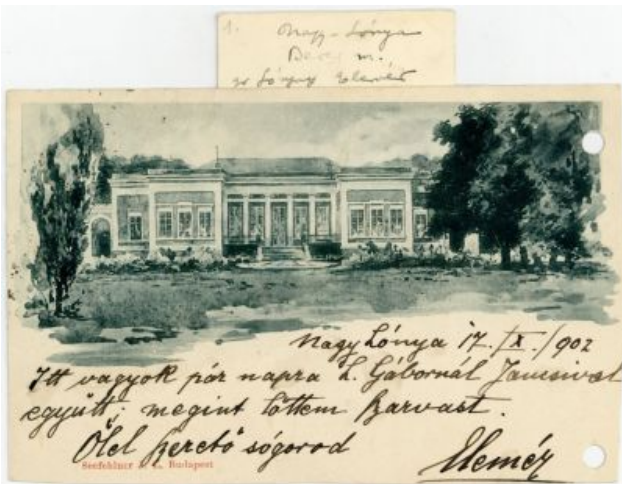 1. Nagy-Lónya
Bereg m.
gr Lónyay Elemér
Nagy Lónya 17./X./902
Itt vagyok pár napra L. Gábornál Jancsival
együtt; megint lőttem szarvast.
Ölel szerető sógorod
Elemér
Seefehlner J. L. Budapest